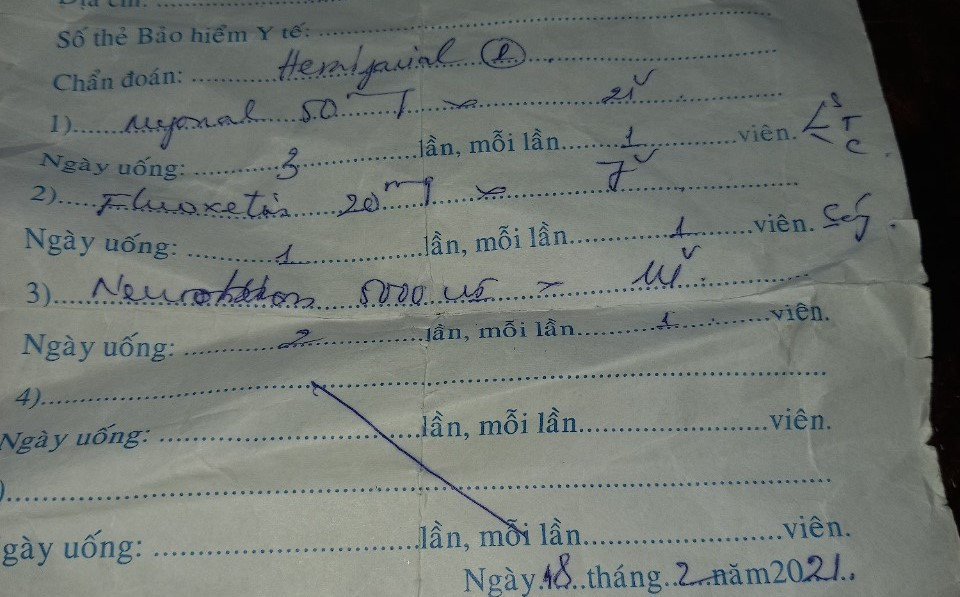 Địa chỉ:
Số thẻ Bảo hiểm Y tế:
Chẩn đoán: Hemifacial
1) Myonal 50mg x 21v
Ngày uống: 3 lần, mỗi lần 1 viên. S T C
2) Fluoxetin 20mg x 7v
Ngày uống: 1 lần, mỗi lần 1 viên.
3) 5000 x 14v
Ngày uống: 2 lần, mỗi lần 1 viên.
4)
Ngày uống: lần, mỗi lần viên.
)
gày uống: lần, mỗi lần viên.
Ngày 18 tháng 2 năm 2021